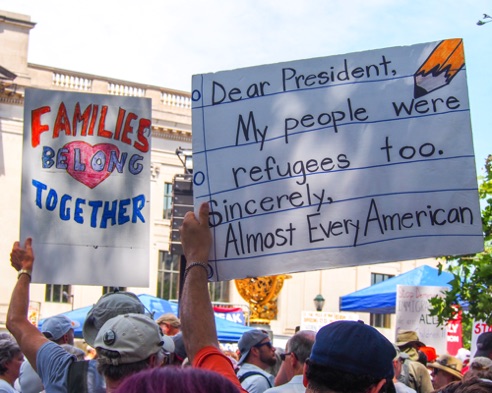 FAMILIES
BELONG
TOGETHER
Dear President,
My people were
refugees too.
Sincerely,
Almost Every American